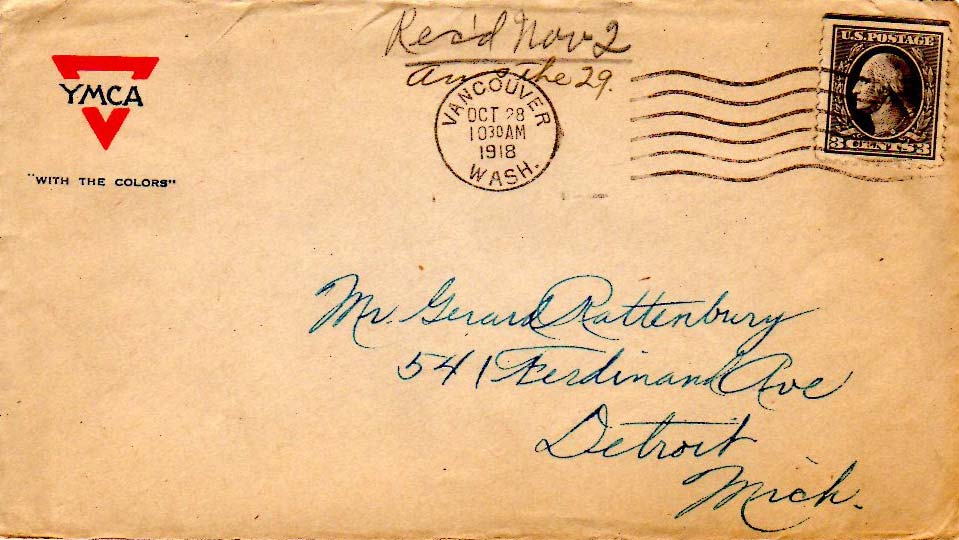 Rec'd Nov 2
Ans the 29.
YMCA
"WITH THE COLORS"
VANCOUVER
OCT 28
10 30 AM
1918
WASH.
U.S. POSTAGE
3 CENTS 3
Mr. Gerard Rattenbury
541 Ferdinand Ave
Detroit
Mich.